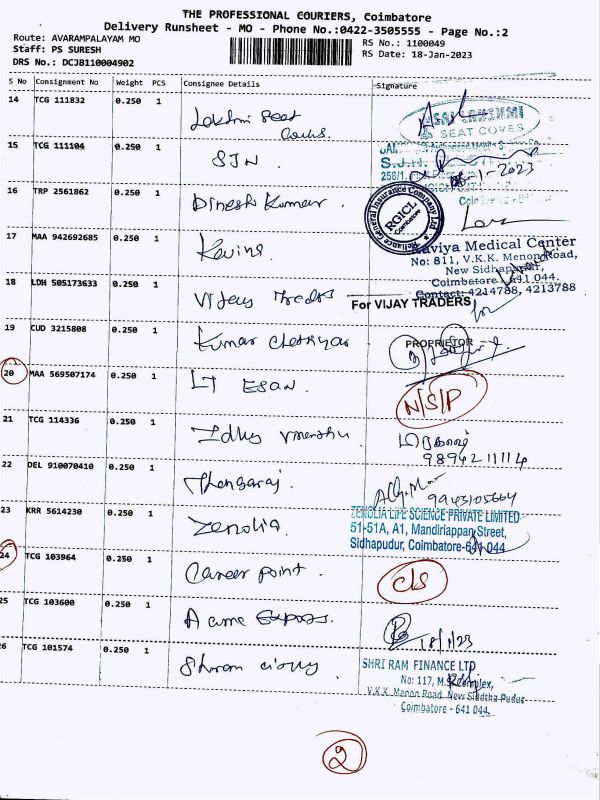 THE PROFESSIONAL COURIERS, Coimbatore
Delivery Runsheet - MO - Phone No.:0422-3505555 - Page No.:2
Route: AVARAMPALAYAM MO
Staff: PS SURESH
DRS No.: DCJB110004902
RS No.: 1100049
RS Date: 18-Jan-2023
S No Consignment No Weight PCS Consignee Details Signature
14 TCG 111832 0.250 1 Lakshmi Seat
SEAT COVES
15 TCG 111104 0.250 1 SJN
S.J.N.
258/1
-1-2023
16 TRP 2561862 0.250 1 Dinesh Kumar.
Reliance General Insurance Company Ltd
RGICL
COIMBATORE
17 MAA 942692685 0.250 1 Kavins.
Kaviya Medical Center
No: 811, V.K.K. Menon Road,
New Sidhapudur,
Coimbatore - 641 044.
Contact: 4214788, 4213788
18 LDH 505173633 0.250 1 Vijay Traders
For VIJAY TRADERS
PROPRIETOR
19 CUD 3215808 0.250 1 Kumar Chettiyar
20 MAA 569507174 0.250 1 LT ESAN.
N/S/P
21 TCG 114336 0.250 1
9894211114
22 DEL 910070410 0.250 1 Thangaraj.
9943105664
23 KRR 5614230 0.250 1 Zenolia.
ZENOLIA LIFE SCIENCE PRIVATE LIMITED
51-51A, A1, Mandiriappan Street,
Sidhapudur, Coimbatore-641 044
24 TCG 103964 0.250 1 Career point.
C/S
25 TCG 103600 0.250 1 Acme Express.
18/1/23
26 TCG 101574 0.250 1
SHRI RAM FINANCE LTD
No: 117, M.S. Complex,
V.K.K. Manon Road, New Siddtha Pudur
Coimbatore - 641 044.
2